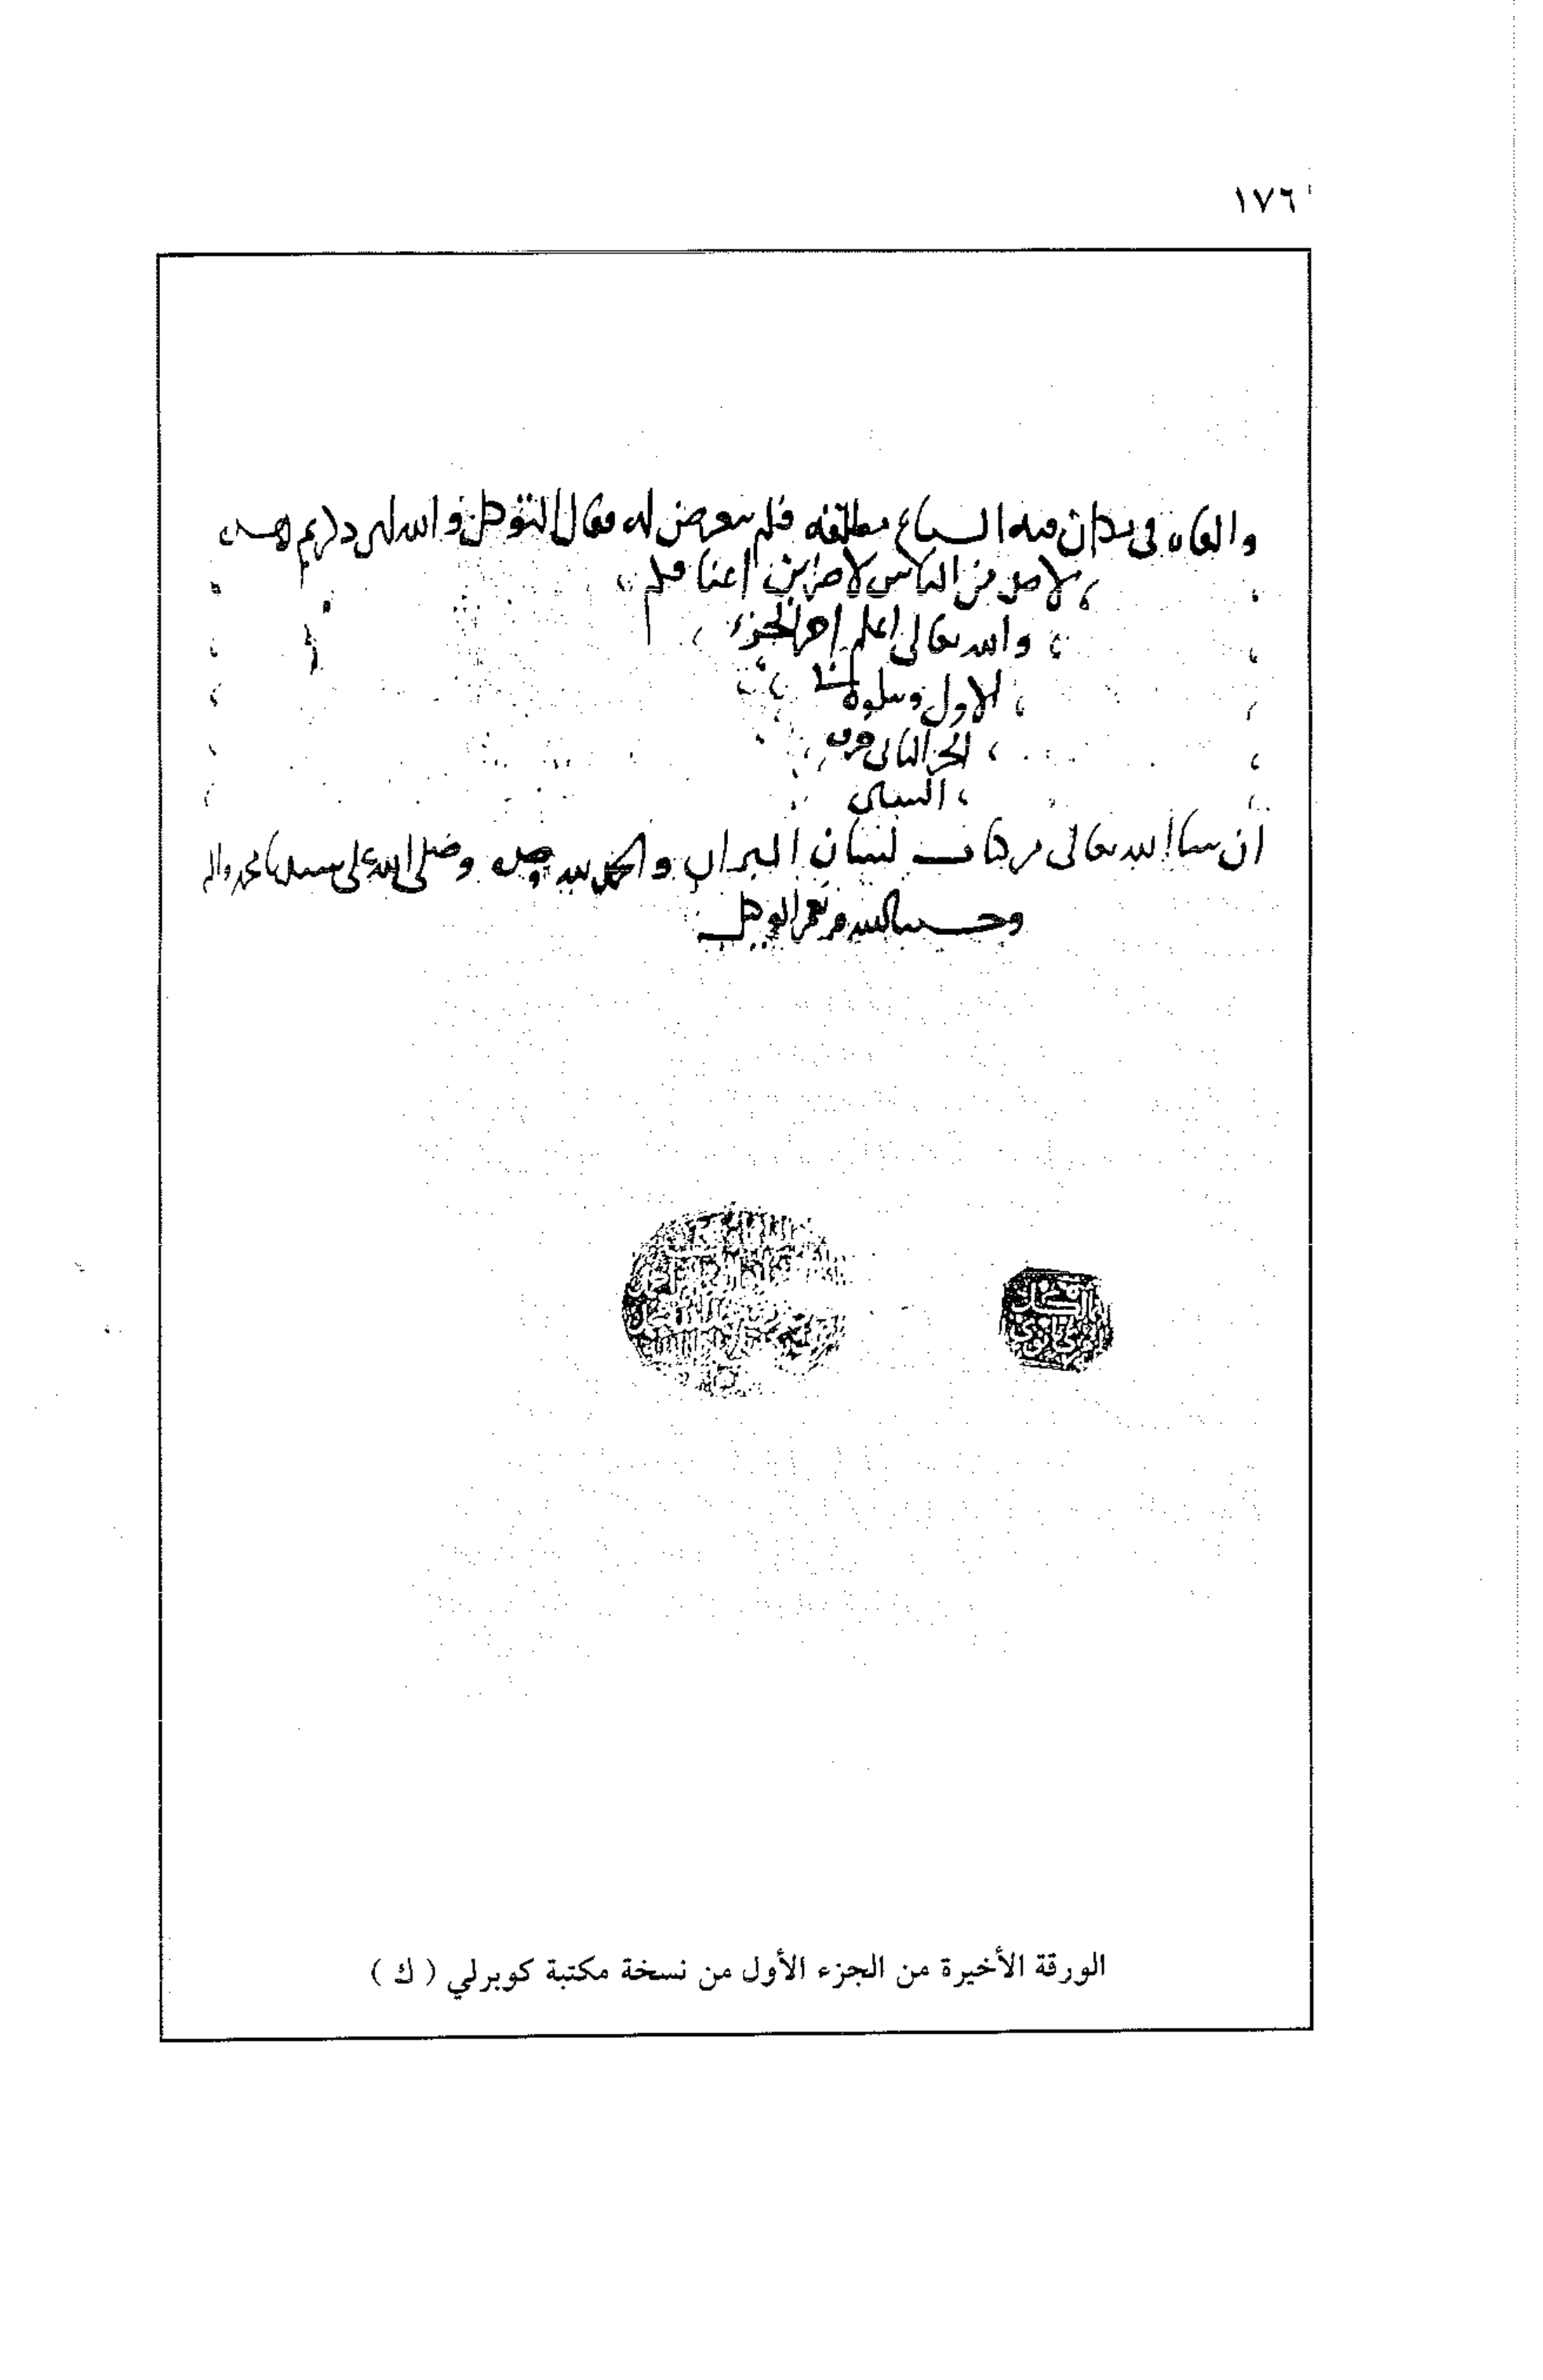 ١٧٦
والقاه في ميدان فيه السباع مطلقه فلم تتعرض له فقال المتوكل والله لئن ذكرتم هذا
لاحد من الناس لاضربن اعناقكم
والله تعالى اعلم اخر الجزء
الاول ويتلوه
الجزء الثاني حرف
السين
ان شاء الله تعالى من كتاب لسان الميزان والحمد لله وحده وصلى الله على سيدنا محمد واله
وحسبنا الله ونعم الوكيل
الورقة الأخيرة من الجزء الأول من نسخة مكتبة كوبرلي ( ك )